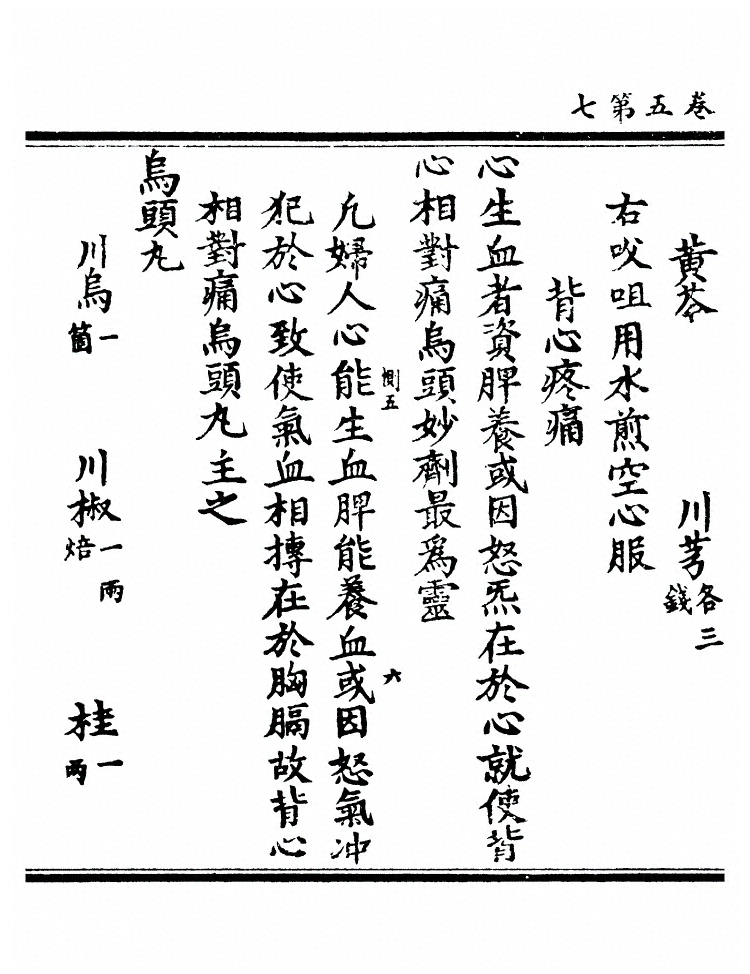 卷五第七
黄芩　川芎各三錢
右㕮咀用水煎空心服
背心疼痛
心生血者資脾養或因怒炁在於心就使背
心相對痛烏頭妙劑最爲靈
惻五　六
凢婦人心能生血脾能養血或因怒氣冲
犯於心致使氣血相摶在於胸膈故背心
相對痛烏頭丸主之
烏頭丸
川烏一箇　川椒一兩焙　桂一兩